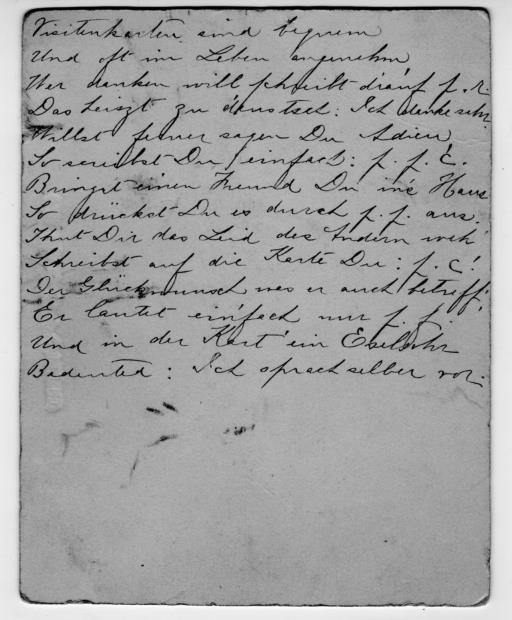 Visitenkarten sind bequem
Und oft im Leben angenehm
Wer danken will schreibt drauf p. r.
Das heiszt zu deustsch: Ich danke sehr.
Willst ferner sagen Du Adieu
So scriebst Du einfach: p. p. c.
Bringst einen Freund Du ins Haus
So drückst Du es durch p. p. aus.
Thut Dir das Leid des Andern weh
Schreibst auf die Karte Du: p. c!
Der Glückwunsch was er auch betreff!
Er lautet einfach nur p. f.
Und in der Kart' ein Eselsohr
Bedeuted: Ich sprach selber vor.